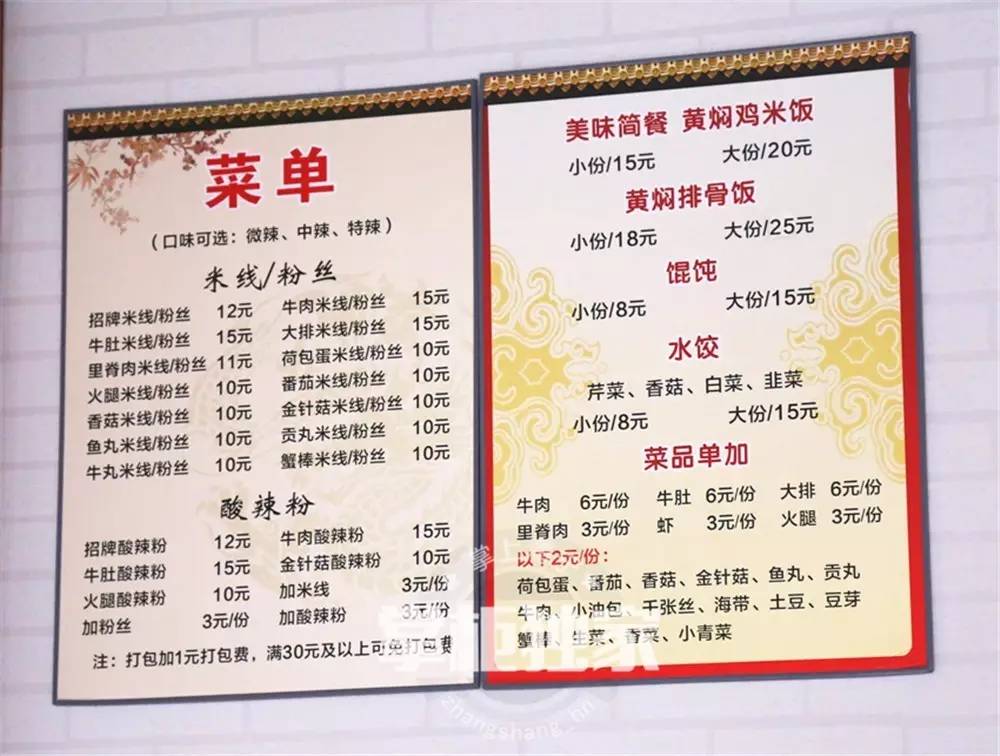 菜单
（口味可选：微辣、中辣、特辣）
米线/粉丝
招牌米线/粉丝 12元 牛肉米线/粉丝 15元
牛肚米线/粉丝 15元 大排米线/粉丝 15元
里脊肉米线/粉丝 11元 荷包蛋米线/粉丝 10元
火腿米线/粉丝 10元 番茄米线/粉丝 10元
香菇米线/粉丝 10元 金针菇米线/粉丝 10元
鱼丸米线/粉丝 10元 贡丸米线/粉丝 10元
牛丸米线/粉丝 10元 蟹棒米线/粉丝 10元
酸辣粉
招牌酸辣粉 12元 牛肉酸辣粉 15元
牛肚酸辣粉 15元 金针菇酸辣粉 10元
火腿酸辣粉 10元 加米线 3元/份
加粉丝 3元/份 加酸辣粉 3元/份
注：打包加1元打包费，满30元及以上可免打包费
美味简餐 黄焖鸡米饭
小份/15元 大份/20元
黄焖排骨饭
小份/18元 大份/25元
馄饨
小份/8元 大份/15元
水饺
芹菜、香菇、白菜、韭菜
小份/8元 大份/15元
菜品单加
牛肉 6元/份 牛肚 6元/份 大排 6元/份
里脊肉 3元/份 虾 3元/份 火腿 3元/份
以下2元/份：
荷包蛋、番茄、香菇、金针菇、鱼丸、贡丸
牛肉、小油包、千张丝、海带、土豆、豆芽
蟹棒、生菜、香菜、小青菜
zhangshang_hn